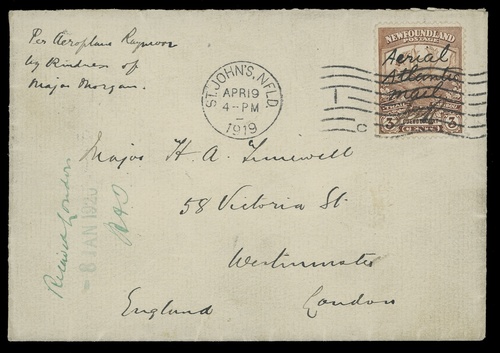 Per Aeroplane Raymor
by kindness of
Major Morgan.
ST. JOHN'S, NFLD.
APR 19
4-PM
1919
NEWFOUNDLAND
POSTAGE
Aerial
Atlantic
mail
3 CENTS 3
Major H. A. Timewell
58 Victoria St.
Westminster
London
England
Received London
-8 JAN 1920